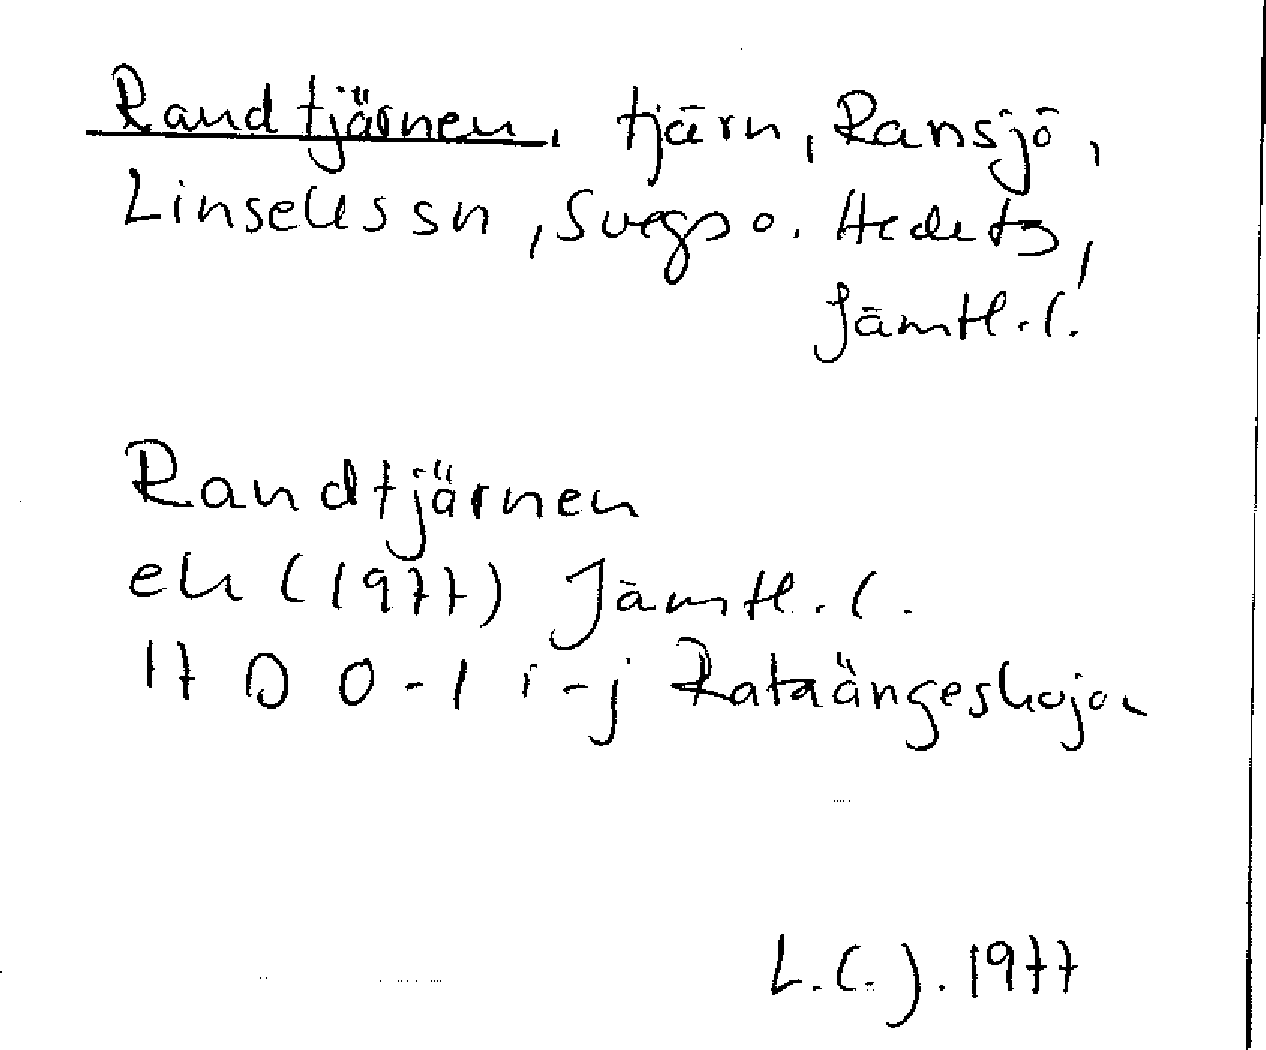 Randtjärnen, tjärn, Ransjö,
Linsells sn, Svegs o. Hede tg,
Jämtl. l.
Randtjärnen
ek (1977) Jämtl. l.
17 D 0-1 i-j Rataängeskojan
L.C.J. 1977